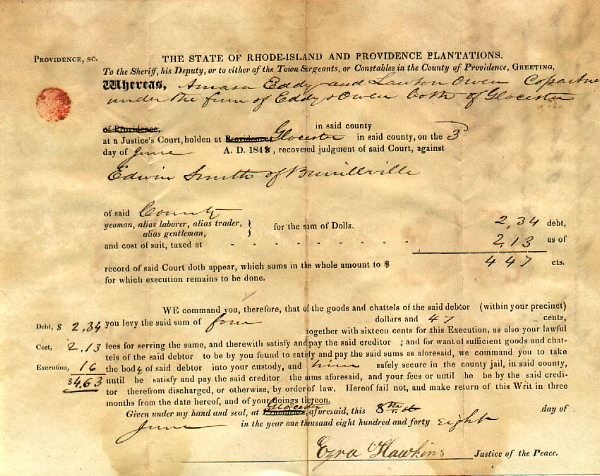 PROVIDENCE, SC.
THE STATE OF RHODE-ISLAND AND PROVIDENCE PLANTATIONS.
To the Sheriff, his Deputy, or to either of the Town Sergeants, or Constables in the County of Providence, GREETING,
Whereas, Amasa Eddy and Lawton Owen Copartne
under the firm of Eddy & Owen both of Glocester
of Providence, in said county
at a Justice's Court, holden at Providence Glocester in said county, on the 3
day of June A. D. 1848, recovered judgment of said Court, against
Edwin Smith of Burrillville
of said County
yeoman, alias laborer, alias trader,
alias gentleman,
for the sum of Dollars. 2,34 debt,
and cost of suit, taxed at 2,13 as of
record of said Court doth appear, which sums in the whole amount to $ 4 47 cts.
for which execution remains to be done.
WE command you, therefore, that of the goods and chattels of the said debtor (within your precinct)
Debt, $ 2,34 you levy the said sum of four dollars and 47 cents,
together with sixteen cents for this Execution, as also your lawful
Cost, 2,13 fees for serving the same, and therewith satisfy and pay the said creditor ; and for want of sufficient goods and chat-
tels of the said debtor to be by you found to satisfy and pay the said sums as aforesaid, we command you to take
Execution, 16 the body of said debtor into your custody, and him safely secure in the county jail, in said county,
$4,63 until he satisfy and pay the said creditor the sums aforesaid, and your fees or until he be by the said credi-
tor therefrom discharged, or otherwise, by order of law. Hereof fail not, and make return of this Writ in three
months from the date hereof, and of your doings thereon.
Given under my hand and seal, at Providence Glocester aforesaid, this 8th day of
June in the year one thousand eight hundred and forty eight
Ezra Hawkins Justice of the Peace.